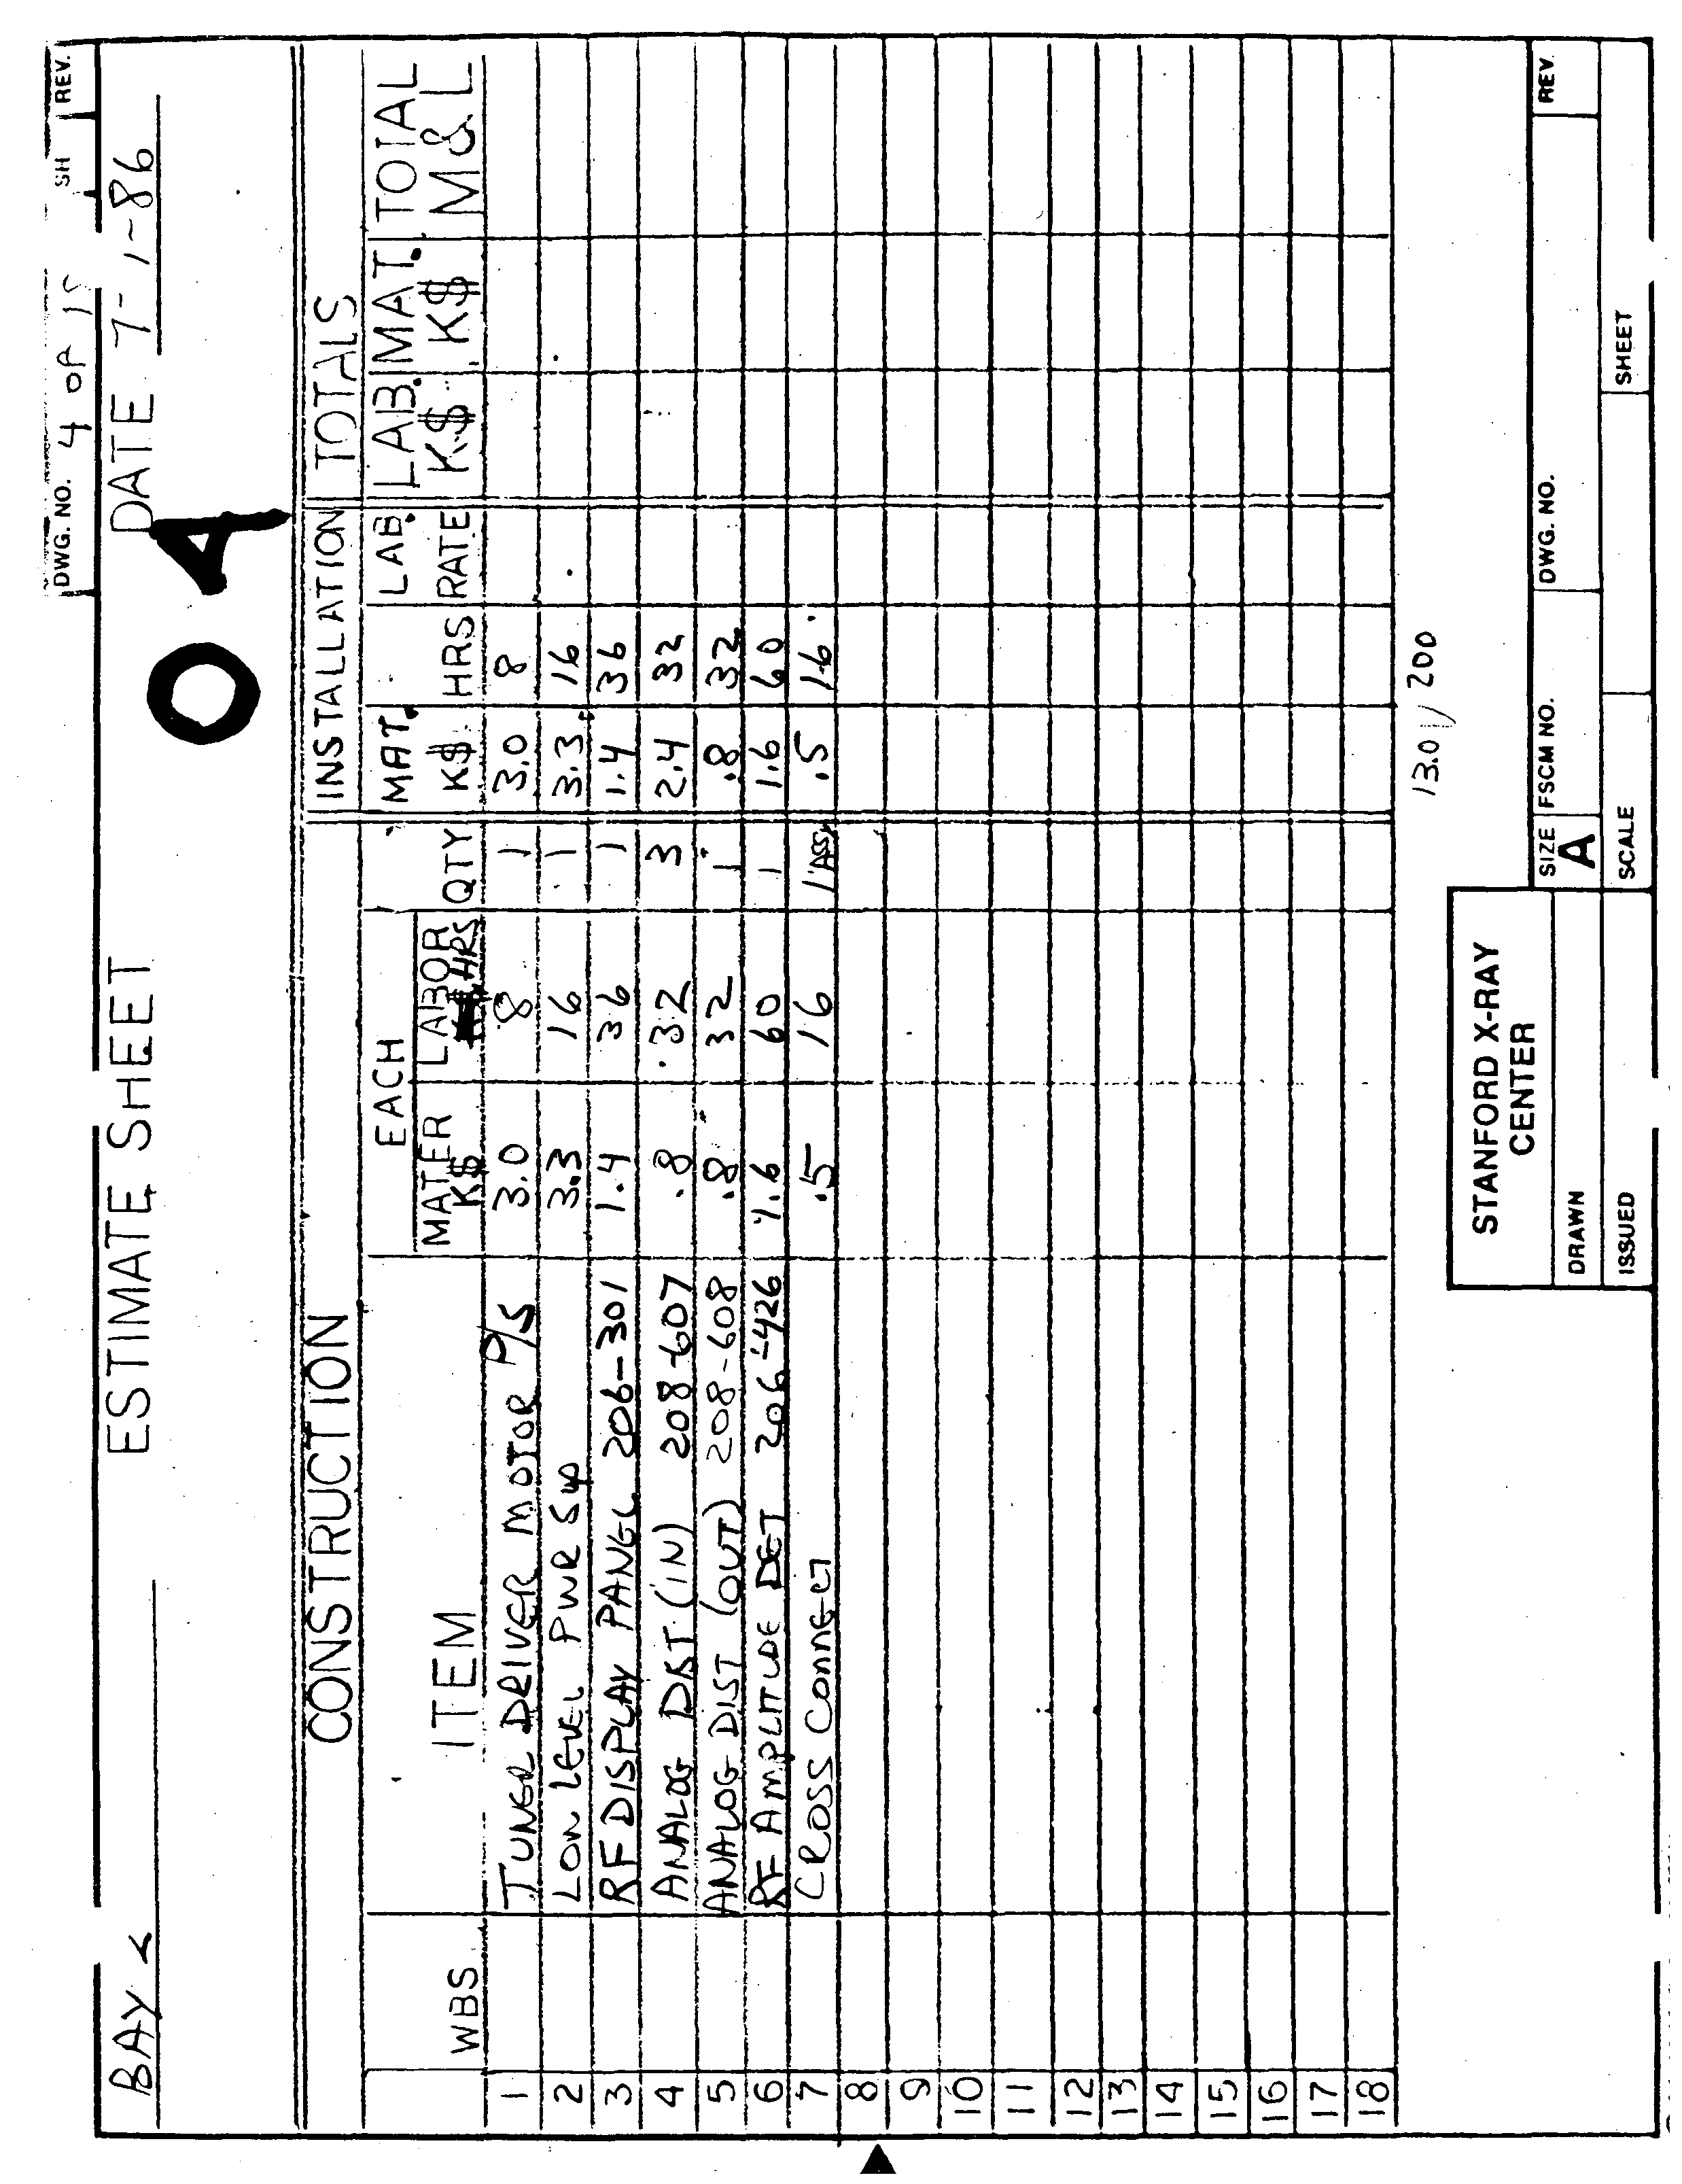 DWG. NO. 4 OF 15 SH REV.
BAY 2 ESTIMATE SHEET DATE 7-1-86
O A
CONSTRUCTION INSTALLATION TOTALS
EACH MAT. LAB. LAB. MAT. TOTAL
WBS ITEM MATER K$ LABOR HRS QTY K$ HRS RATE K$ K$ M&L
1 TUNER DRIVER MOTOR P/S 3.0 8 1 3.0 8
2 LOW LEVEL PWR SUP 3.3 16 1 3.3 16
3 RF DISPLAY PANEL 206-301 1.4 36 1 1.4 36
4 ANALOG DIST (IN) 208-607 .8 32 3 2.4 32
5 ANALOG DIST (OUT) 208-608 .8 32 1 .8 32
6 RF AMPLITUDE DET 206-426 1.6 60 1 1.6 60
7 CROSS Connect .5 16 1 ASSY .5 16
8
9
10
11
12
13
14
15
16
17
18
13.0 / 200
STANFORD X-RAY
CENTER
SIZE A FSCM NO. DWG. NO. REV.
DRAWN
ISSUED SCALE SHEET